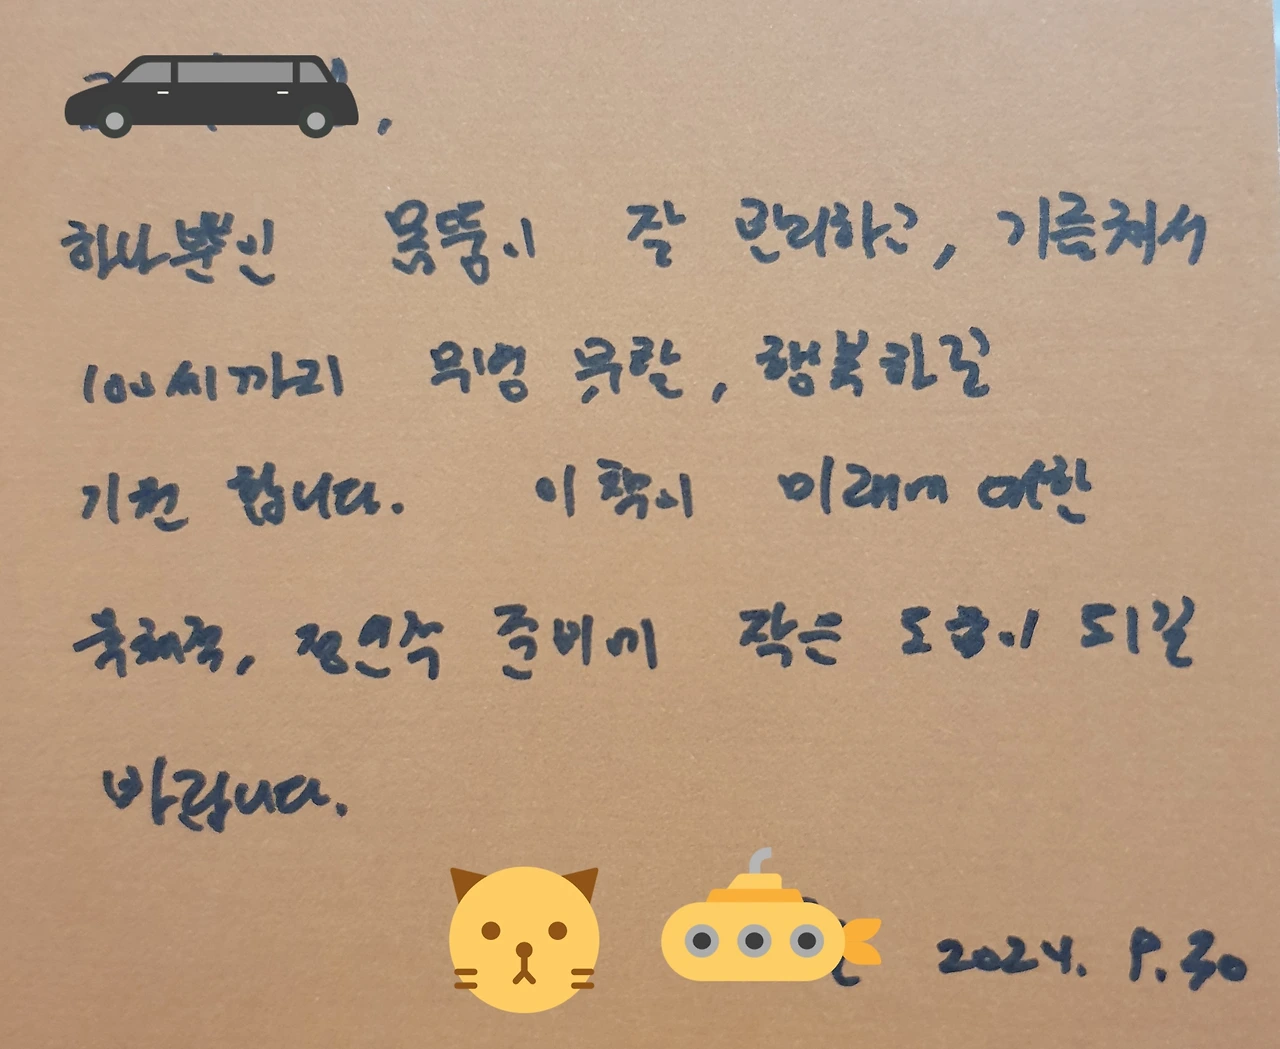 하나뿐인 몸뚱이 잘 관리하고, 기름쳐서
100세까지 무병 무탈, 행복하길
기원 합니다. 이 책이 미래에 대한
육체적, 정신적 준비에 작은 도움이 되길
바랍니다.
2024. 9. 30